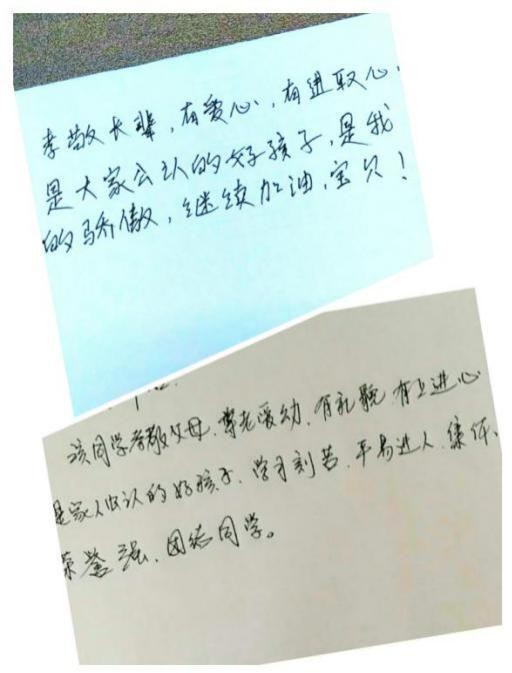 孝敬长辈，有爱心，有进取心．
是大家公认的好孩子，是我
的骄傲，继续加油，宝贝！
该同学孝敬父母、尊老爱幼、有礼貌 有上进心
是家人公认的好孩子、学习刻苦、平易近人、集体、
荣誉强、团结同学。